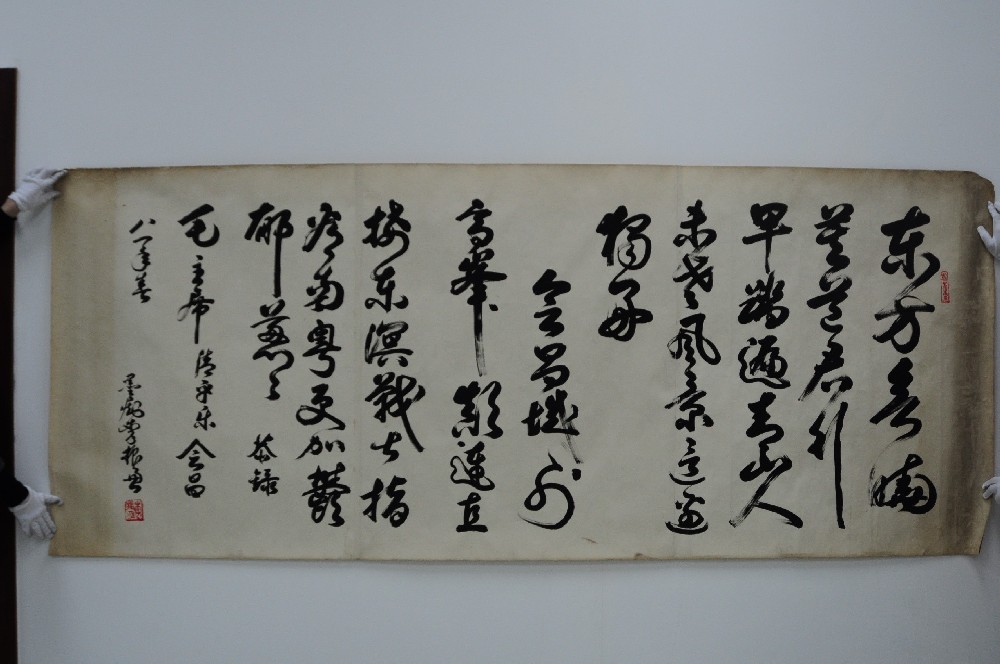 东方欲曉
莫道君行
早踏遍青山人
未老风景这边
獨好
会昌城外
高峯颠連直
接东溟战士指
看南粤更加鬱
郁葱葱 恭録
毛主席清平乐会昌
八一年春